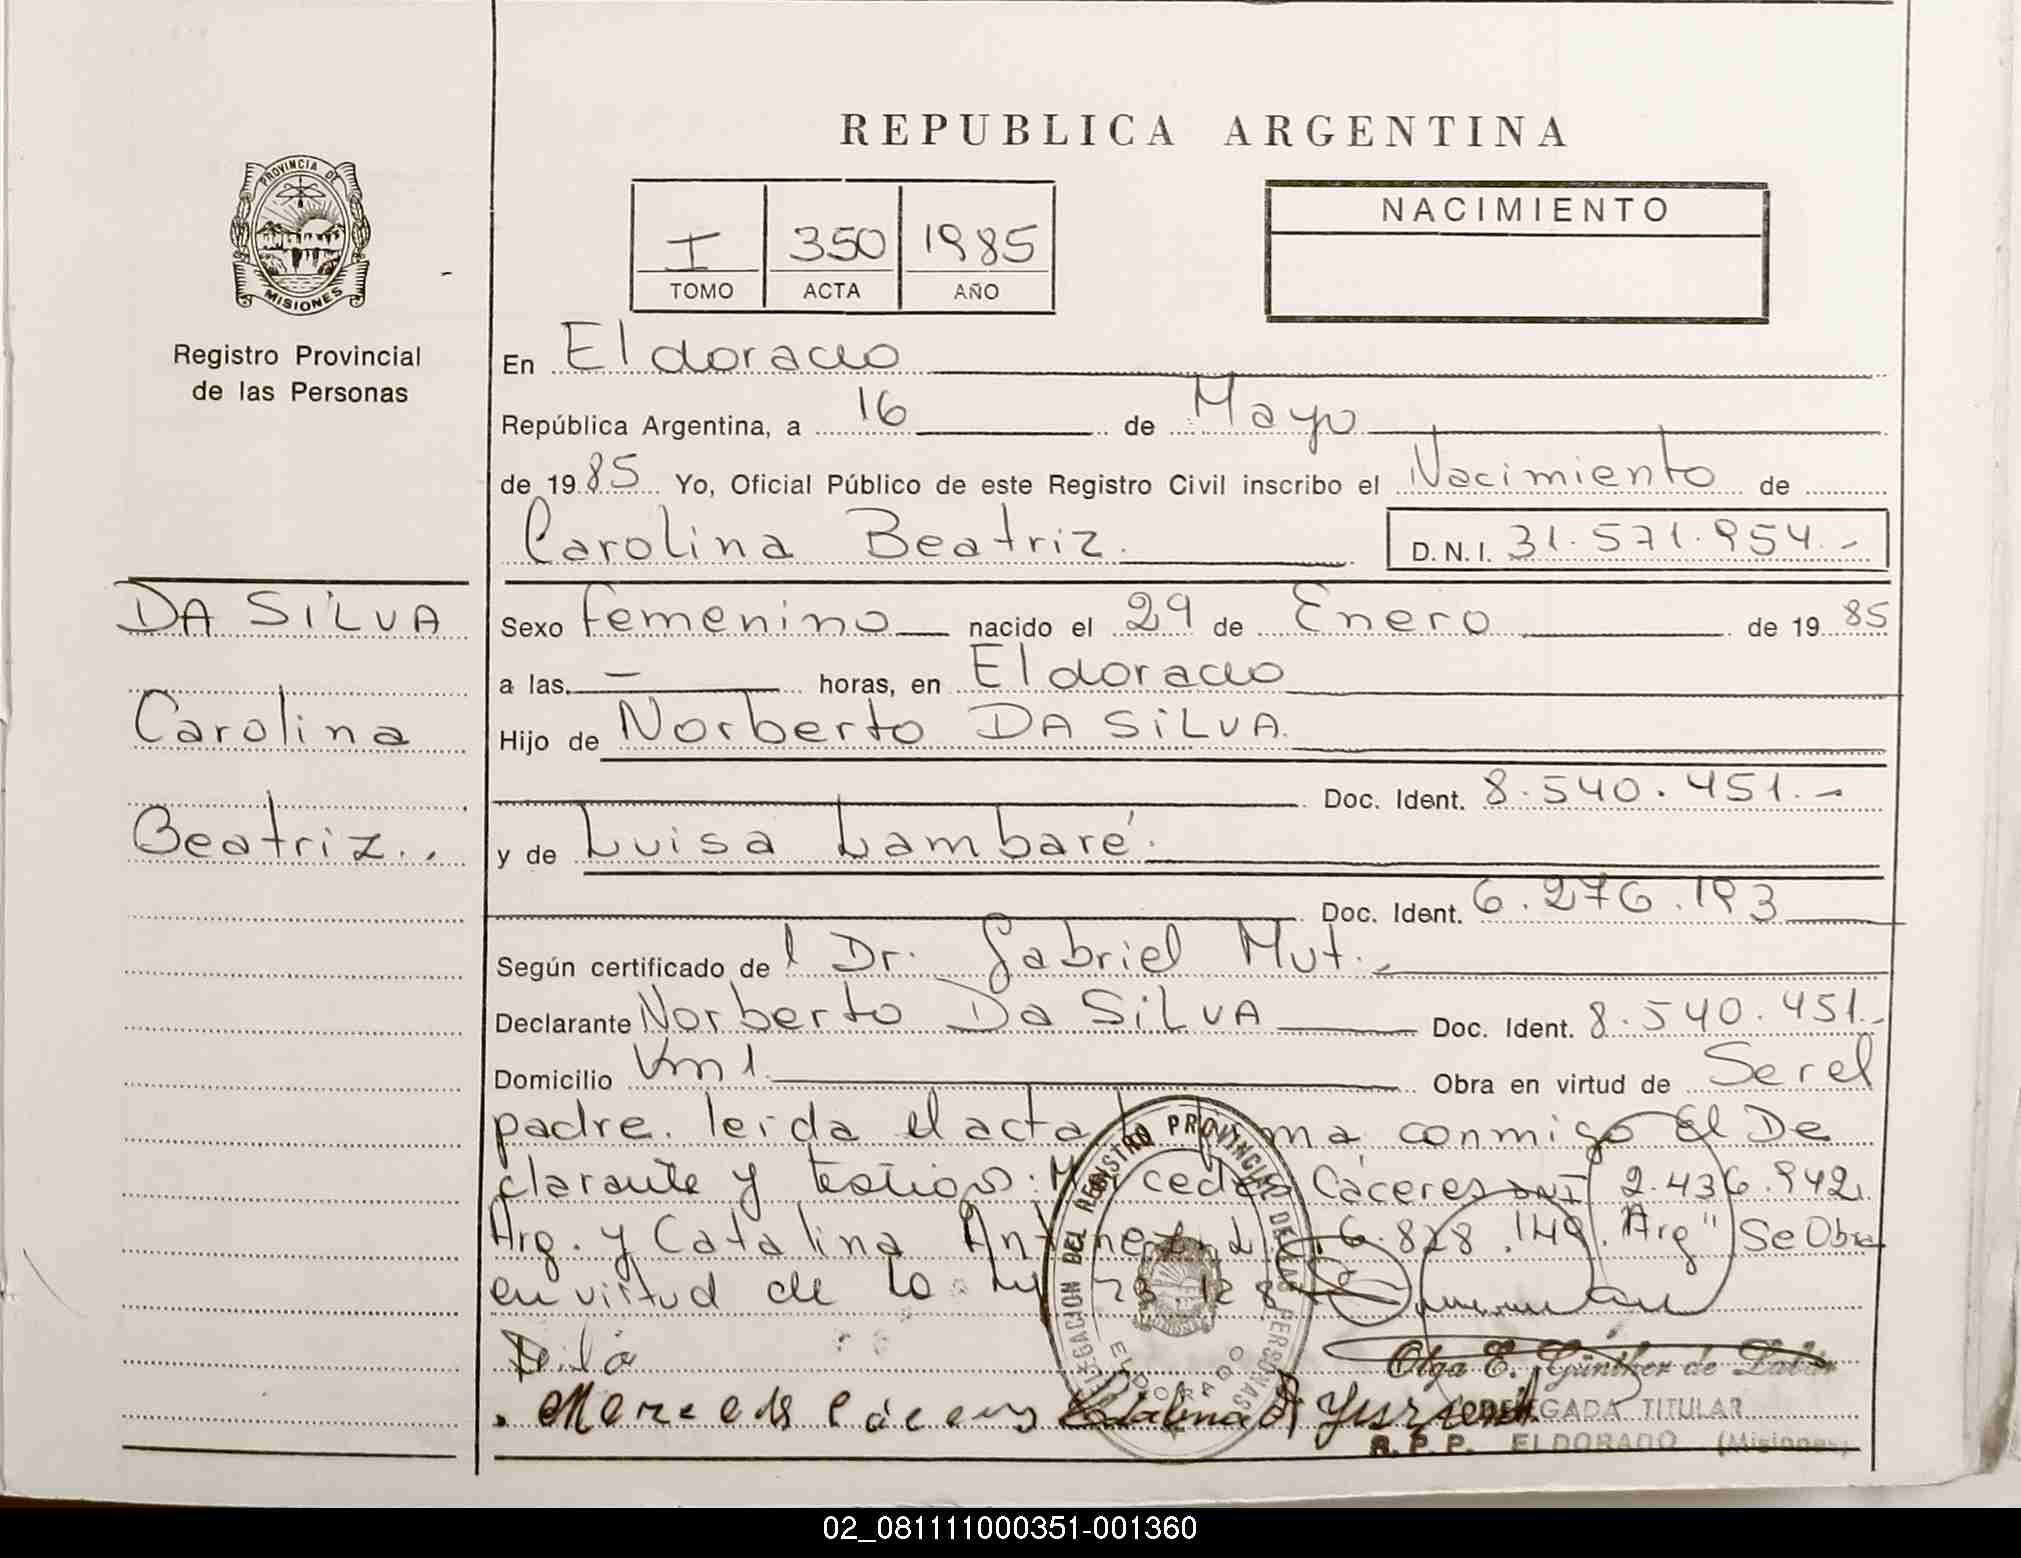 REPUBLICA ARGENTINA
PROVINCIA DE
MISIONES
Registro Provincial
de las Personas
I 350 1985
TOMO ACTA AÑO
NACIMIENTO
En Eldorado
República Argentina, a 16 de Mayo
de 1985 Yo, Oficial Público de este Registro Civil inscribo el Nacimiento de
Carolina Beatriz. D.N.I. 31.571.954.-
DA SILVA
Carolina
Beatriz..
Sexo femenino nacido el 29 de Enero de 1985
a las. — horas, en Eldorado
Hijo de Norberto DA SILVA.
Doc. Ident. 8.540.451.-
y de Luisa Lambaré.
Doc. Ident. 6.276.193
Según certificado del Dr. Gabriel Mut.-
Declarante Norberto Da SILVA Doc. Ident. 8.540.451.-
Domicilio Km 1. Obra en virtud de Ser el
padre. leida el acta firma conmigo El De
clarante y testigos: Mercedes Cáceres DNI 2.436.942
Arg. y Catalina 6.828.149. Arg" Se Obra
en virtud de la ley 23.128
DELEGACION DEL REGISTRO PROVINCIAL DE LAS PERSONAS
ELDORADO
Olga E. Günther de
Mercedes Cáceres Catalina A
DELEGADA TITULAR
R.P.P. ELDORADO (Misiones)
02_081111000351-001360